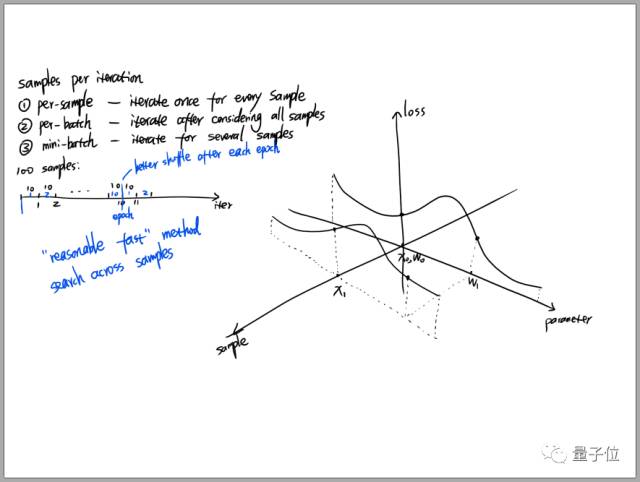 samples per iteration
① per-sample — iterate once for every sample
② per-batch — iterate after considering all samples
③ mini-batch — iterate for several samples
better shuffle after each epoch
100 samples:
10 10 ... 10 10
1 2 10 1 2
1 2 10 11
iter
epoch
"reasonable fast" method
search across samples
loss
x₀,w₀
x₁
w₁
sample
parameter
量子位